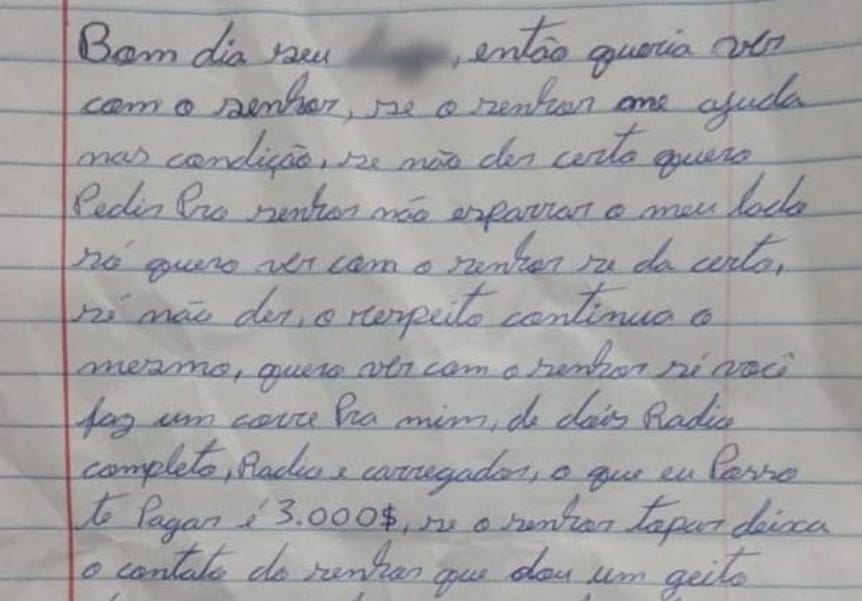 Bom dia seu , então queria ver
com o senhor, se o senhor me ajuda
nas condição, se não der certo quero
Pedir Pro senhor não esparrar o meu lado
só quero ver com o senhor se da certo,
sé não der, o respeito continua o
mesmo, quero ver com o senhor sé você
faz um corre Pra mim, de dois Radio
completo, Radio e carregador, o que eu Posso
te Pagar é 3.000$, se o senhor topar deixa
o contato do senhor que dou um geito